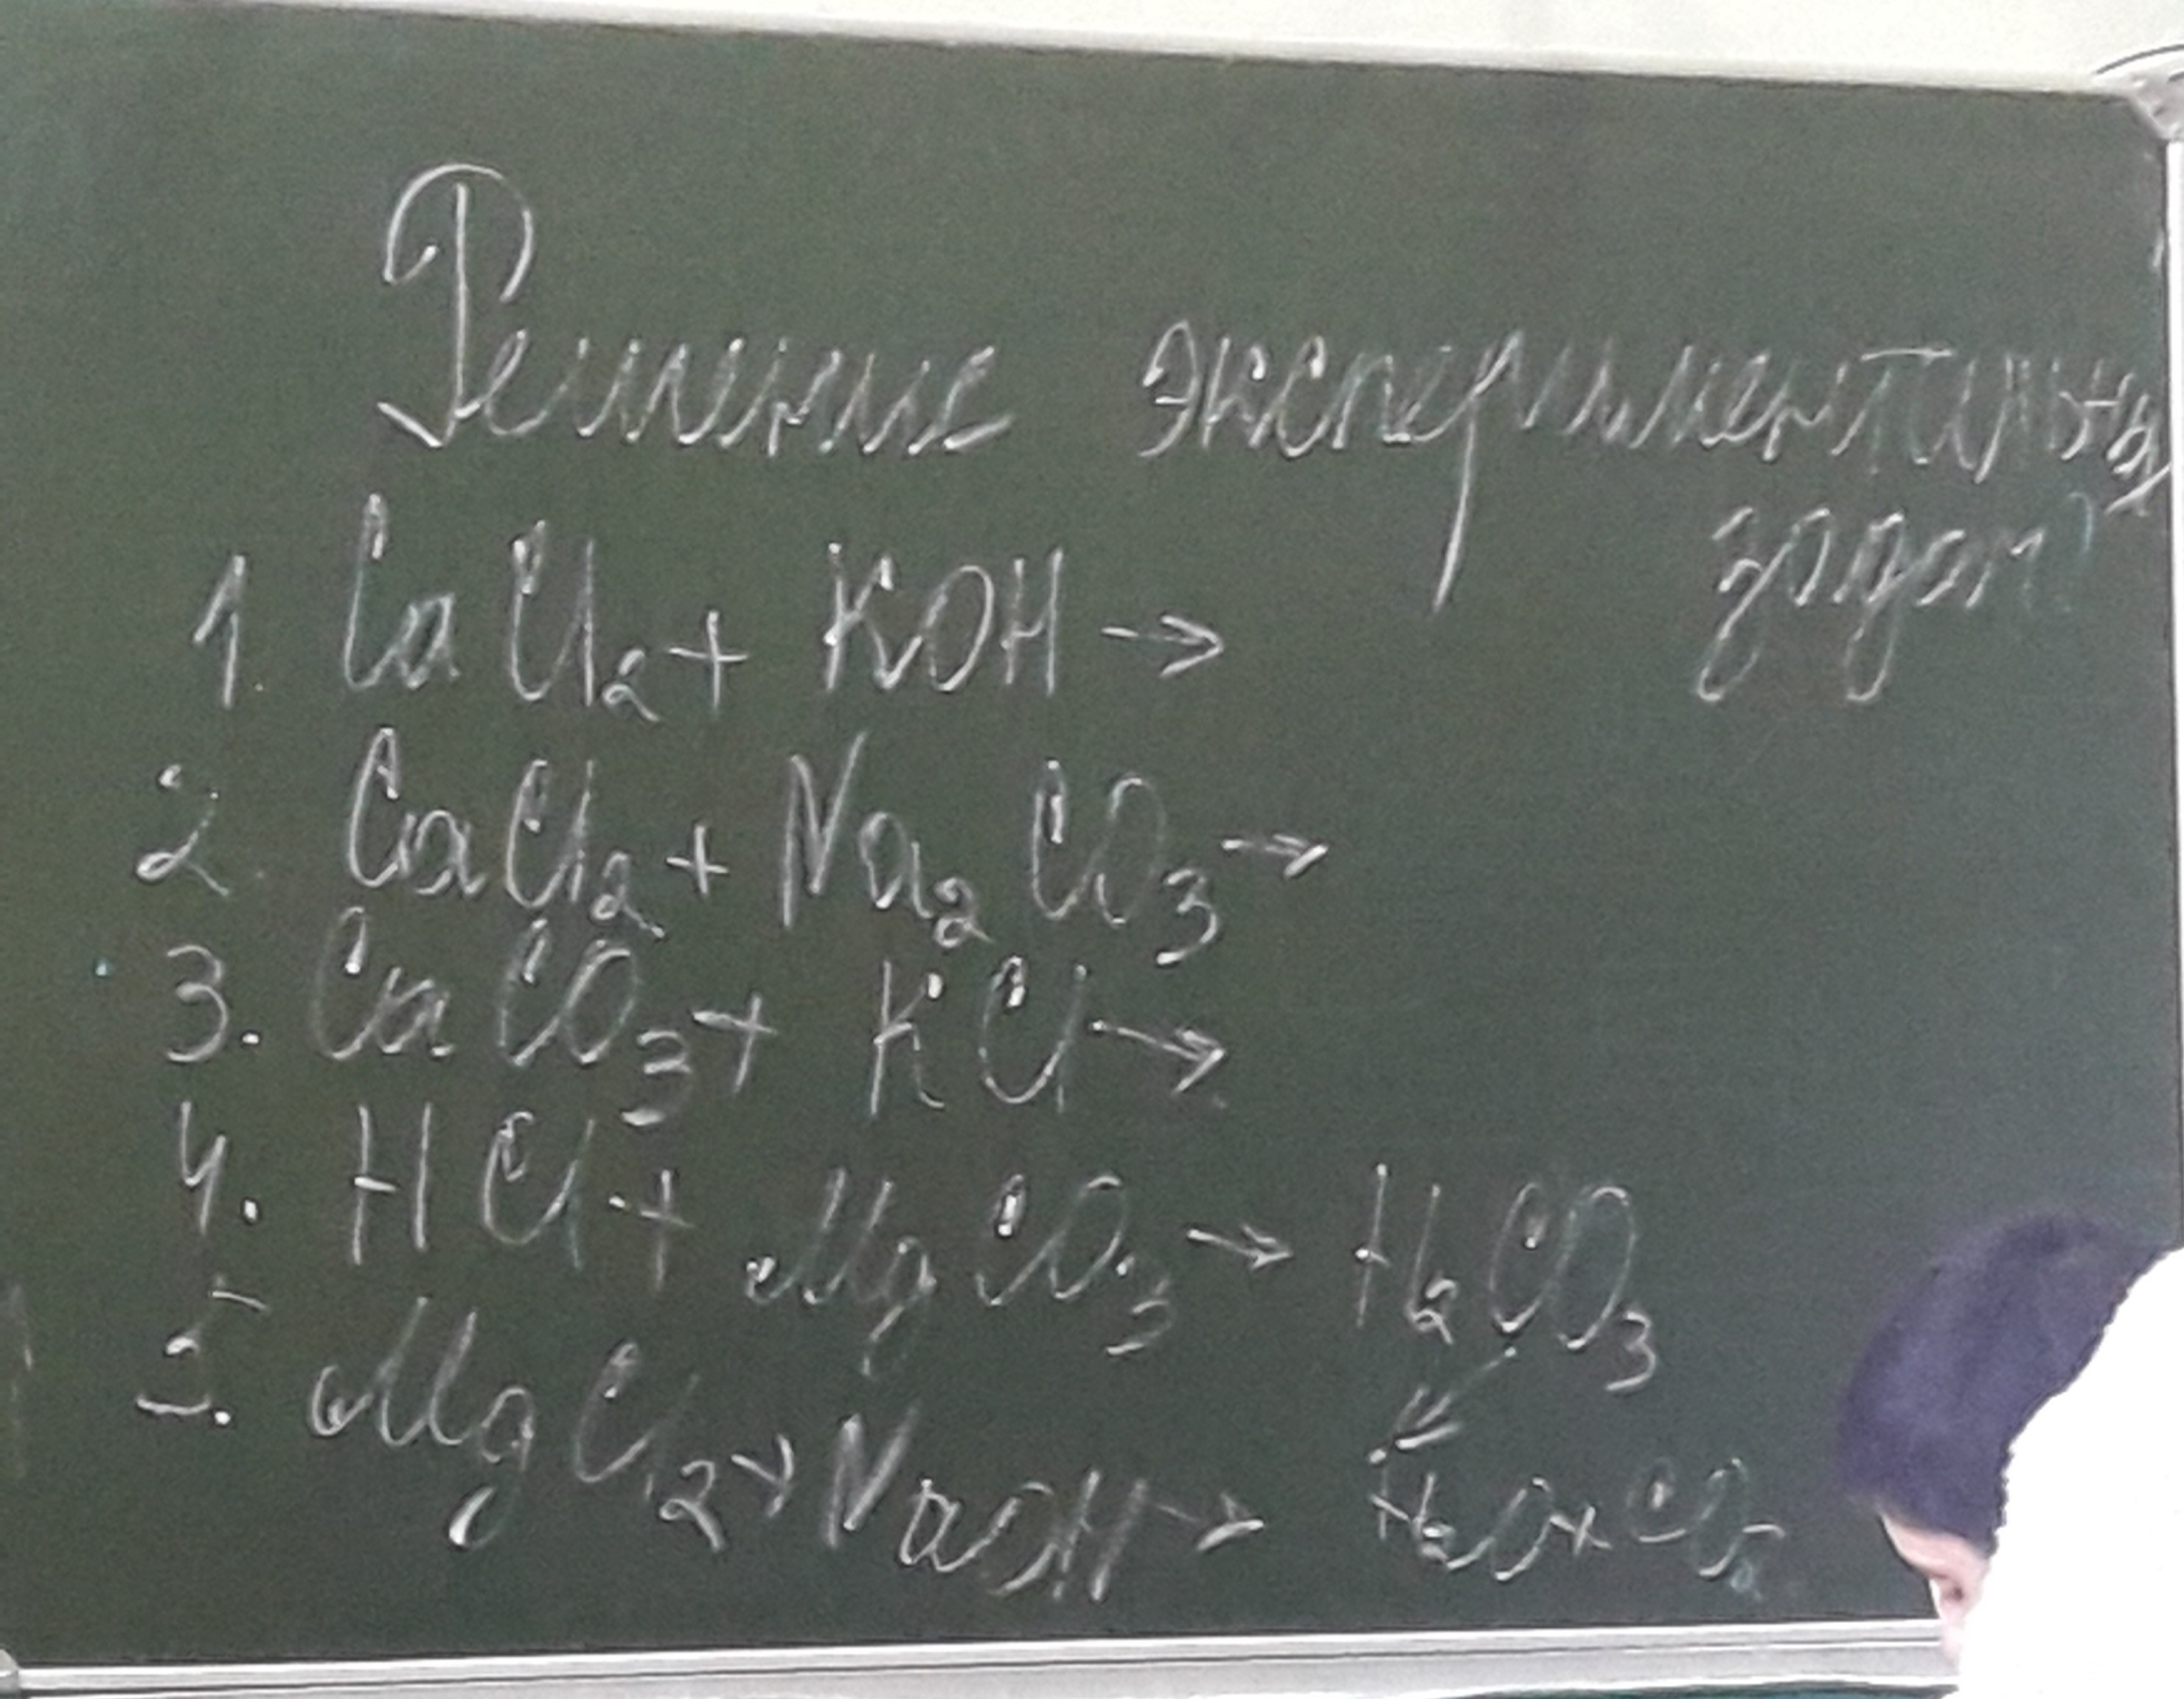 Решение экспериментальных
задач
1. CaCl₂ + KOH →
2. CaCl₂ + Na₂CO₃ →
3. CaCO₃ + KCl →
4. HCl + MgCO₃ → H₂CO₃
↙
5. MgCl₂ + NaOH → H₂O + CO₂